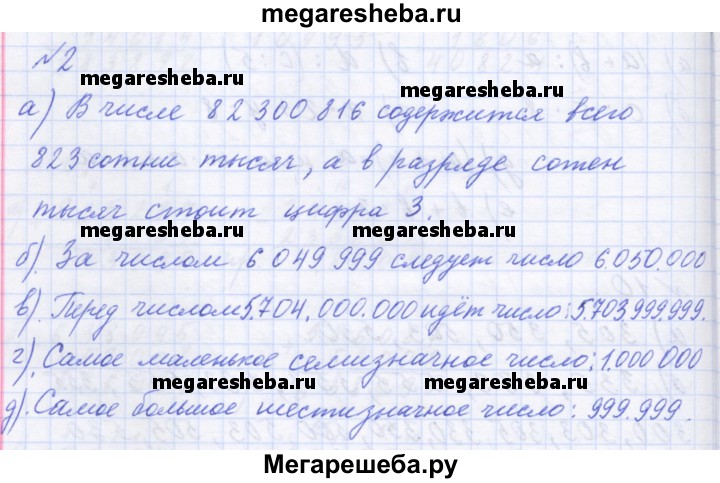 megaresheba.ru
№2
megaresheba.ru
megaresheba.ru
а) В числе 82 300 816 содержится всего
823 сотни тысяч, а в разряде сотен
тысяч стоит цифра 3.
megaresheba.ru
megaresheba.ru
б). За числом 6 049 999 следует число 6.050.000
в). Перед числом 5.704.000.000 идёт число: 5.703.999.999.
г). Самое маленькое семизначное число: 1.000 000
megaresheba.ru
megaresheba.ru
д). Самое большое шестизначное число: 999.999.
Мегарешеба.ру